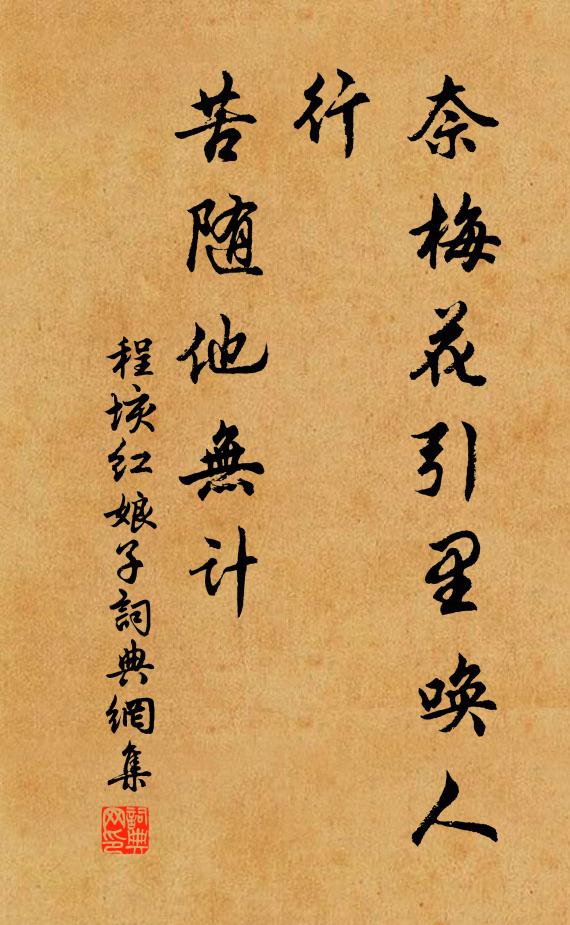 奈梅花引里唤人
行
苦随他無计
程垓红娘子詞典網集
詞典网印